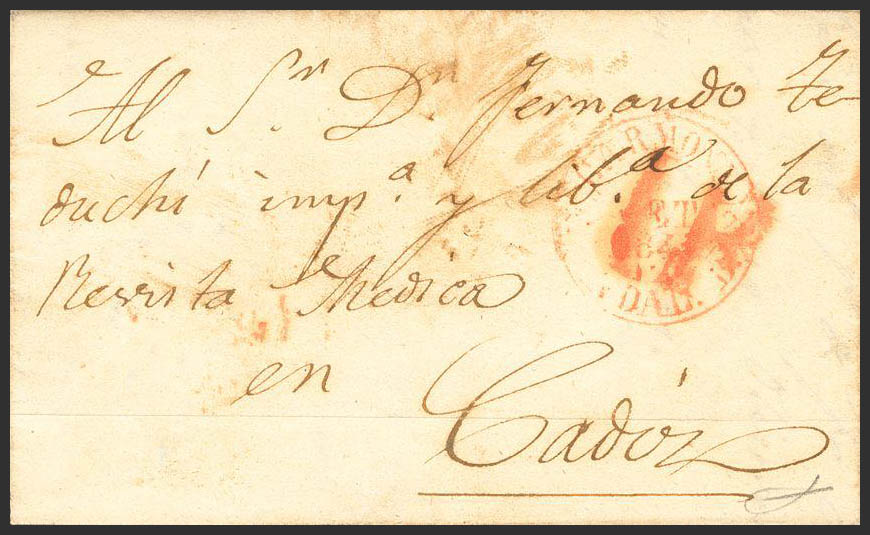 Al Sr. Dn. Fernando Te-
duchi impa. y liba. de la
Revista Medica
en
Cadiz